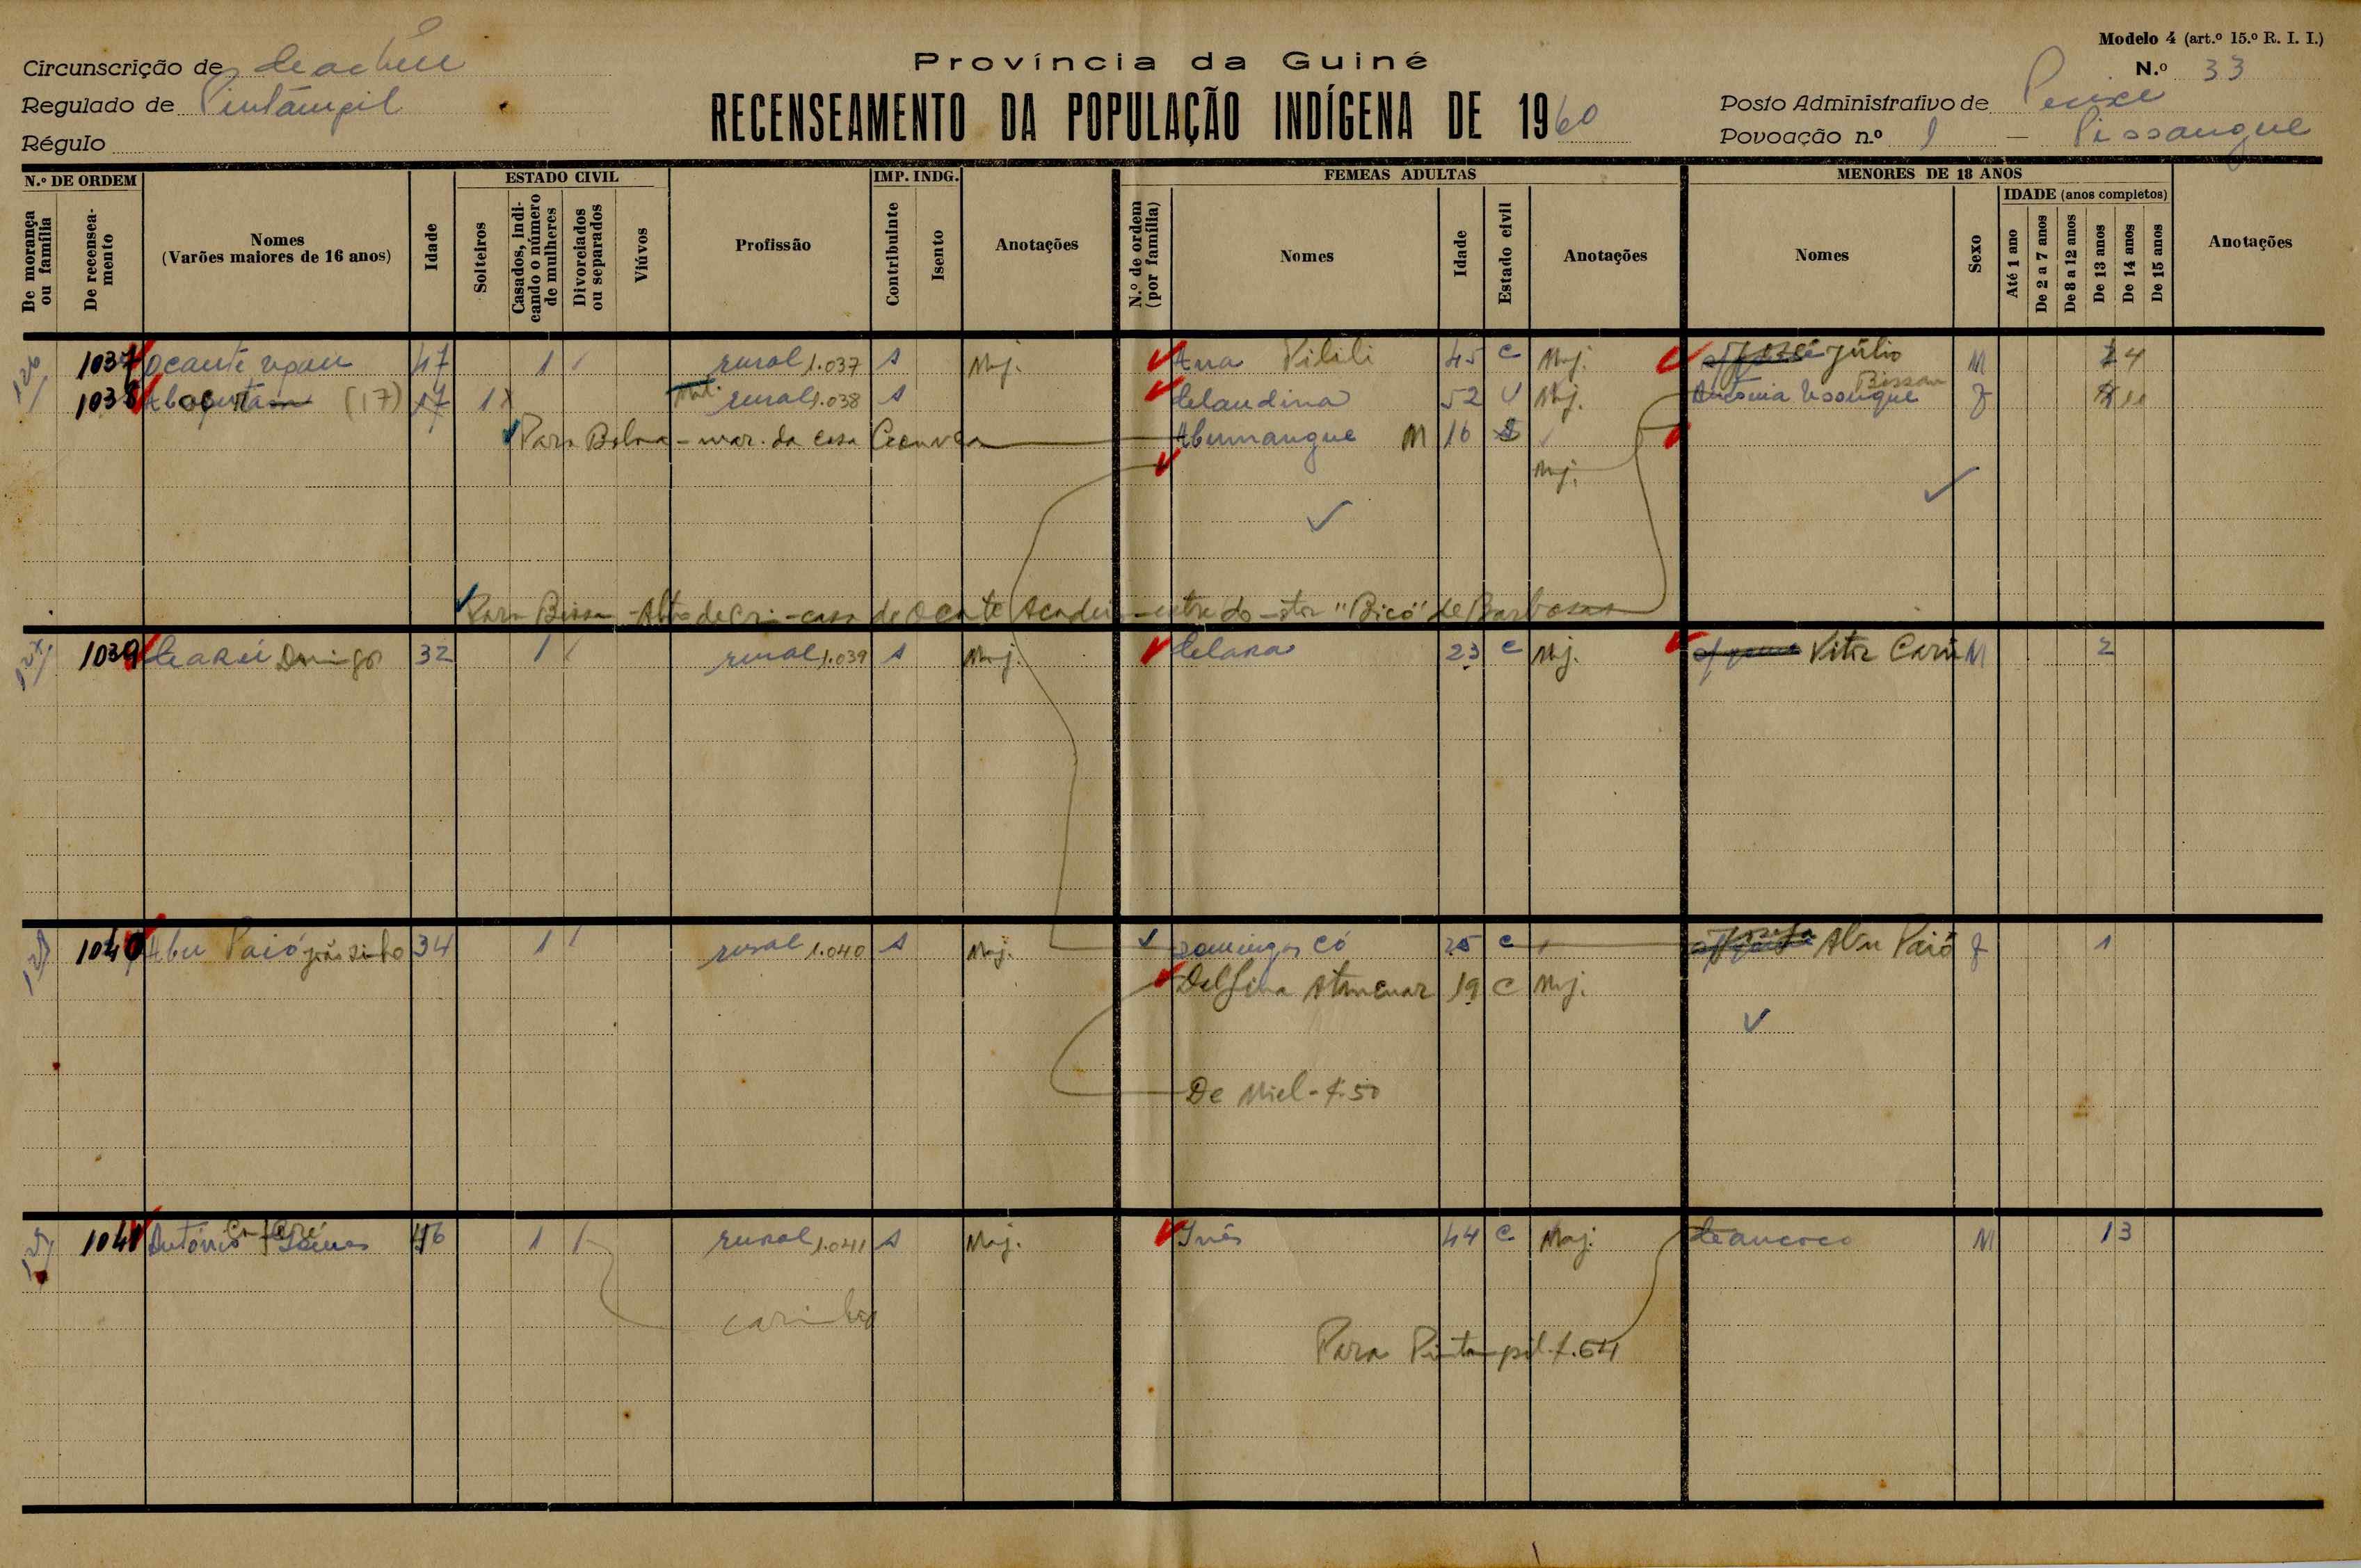 Modelo 4 (art.º 15.º R. I. I.)
Província da Guiné
N.º 33
Circunscrição de Cacheu
Regulado de Pintâmpil
Régulo
RECENSEAMENTO DA POPULAÇÃO INDÍGENA DE 1960
Posto Administrativo de Pecixe
Povoação n.º 1 — Pissangue
N.º DE ORDEM
De morança ou família
De recenseamento
Nomes
(Varões maiores de 16 anos)
Idade
ESTADO CIVIL
Solteiros
Casados, indicando o número de mulheres
Divorciados ou separados
Viúvos
Profissão
IMP. INDG.
Contribuinte
Isento
Anotações
FEMEAS ADULTAS
N.º de ordem (por família)
Nomes
Idade
Estado civil
Anotações
MENORES DE 18 ANOS
Nomes
Sexo
IDADE (anos completos)
Até 1 ano
De 2 a 7 anos
De 8 a 12 anos
De 13 anos
De 14 anos
De 15 anos
Anotações
1037 Ocante 47 1 rural 1.037 s Maj. Ana Pilili 45 C Maj. Júlio M 4
1038 (17) 17 1 rural 1.038 s Claudina 52 V Maj. António Bissau
Para Bolama - mar. da casa Gouveia Abumangue M 16
Maj.
Para Bissau - Alto de Crim - casa de Ocante "Bicó" de Barbosa
1039 Carú Domingos 32 1 rural 1.039 s Maj. Clara 23 C Maj. Vitor Carú M 2
1040 Abu Paió joãosinho 34 1 rural 1.040 s Maj. Domingas Có 25 C Abu Paió F 1
Delfina 19 C Maj.
De Niel - f. 50
1041 António Gomes 46 1 rural 1.041 s Maj. Inês 44 C Maj. M 13
Para Pintampil f. 64